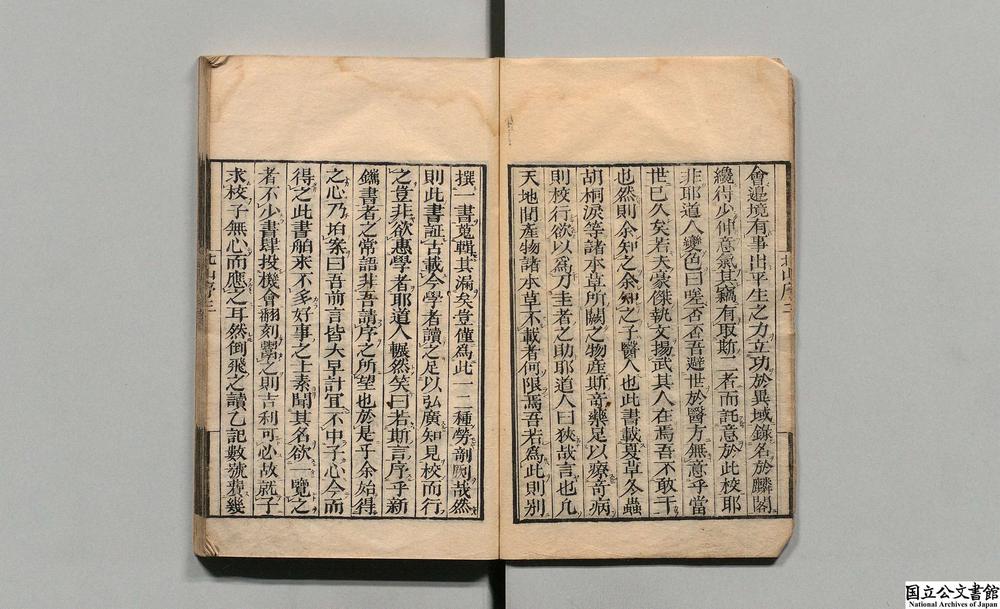 會邉境有事出平生之力立功於異域錄名於麟閣
纔得少伸意氣其竊有取斯二者而託意於此校耶
非耶道人變色曰嘻否否吾避世於醫方無意乎當
世已久矣若夫豪傑執文揚武其人在焉吾不敢干
也然則余知之余知之子醫人也此書載夏草冬蟲
胡桐淚等諸本草所闕之物產斯奇藥足以療奇病
則校行欲以爲刀圭者之助耶道人曰狹哉言也凡
天地間產物諸本草不載者何限焉吾若爲此則別
北山序二
撰一書蒐輯其漏矣豈僅爲此一二種勞剞劂哉然
則此書証古載今學者讀之足以弘廣知見校而行
之豈非欲惠學者耶道人囅然笑曰若斯言序乎新
鐫書者之常語非吾請序之所望也於是乎余始得
之心乃拍案曰吾前言皆大早計宜不中子心今而
得之此書舶來不多好事之士素聞其名欲一覽之
者不少書肆投機會翻刻鬻之則吉利可必故就子
求校子無心而應之耳然倒飛之讀乙記數號費幾
北山序三
国立公文書館
National Archives of Japan